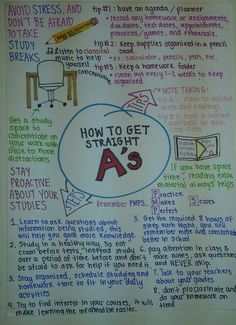 AVOID STRESS, AND
DON'T BE AFRAID
TO TAKE
STUDY
BREAKS
tip #1 : have an agenda / planner
• record any homework or assignments,
due dates, test dates, appointments,
practices / games, and rehearsals.
tip #2 : Keep supplies organized in a pencil
case
ex: calculator, pencils, pens, etc.
tip #3 : Keep a homework folder
• clean out every 1-2 weeks to keep
organized
listen to classical
music to help
yourself
concentrate
Get a study
space to
concentrate on
your work with
little to no
distractions
HOW TO GET
STRAIGHT
A's
NOTE TAKING:
If you have space
/ time, reading extra
material always helps
TIPS
STAY
PROACTIVE
ABOUT YOUR
STUDIES
Remember PMPS.
Practice
Makes
Perfect
Scores
1. Learn to ask questions about
information being studied, this
will help you gain more knowledge.
2. Study in a healthy way. Do not
cram before tests, instead study
over a period of time before and don't
be afraid to ask for help if you need it.
3. Stay organized, schedule studying and
homework time to fit in your daily
activities
4. Try to find interest in your courses, it will
make learning the information easier.
5. Get the required 8 hours of
sleep each night, you will
remember more and concentrate
better in school
6. pay attention in class &
take notes, ask questions,
and NEVER skip.
7. Talk to your teachers
about your grades
8. don't procrastinate and
do your homework on
time